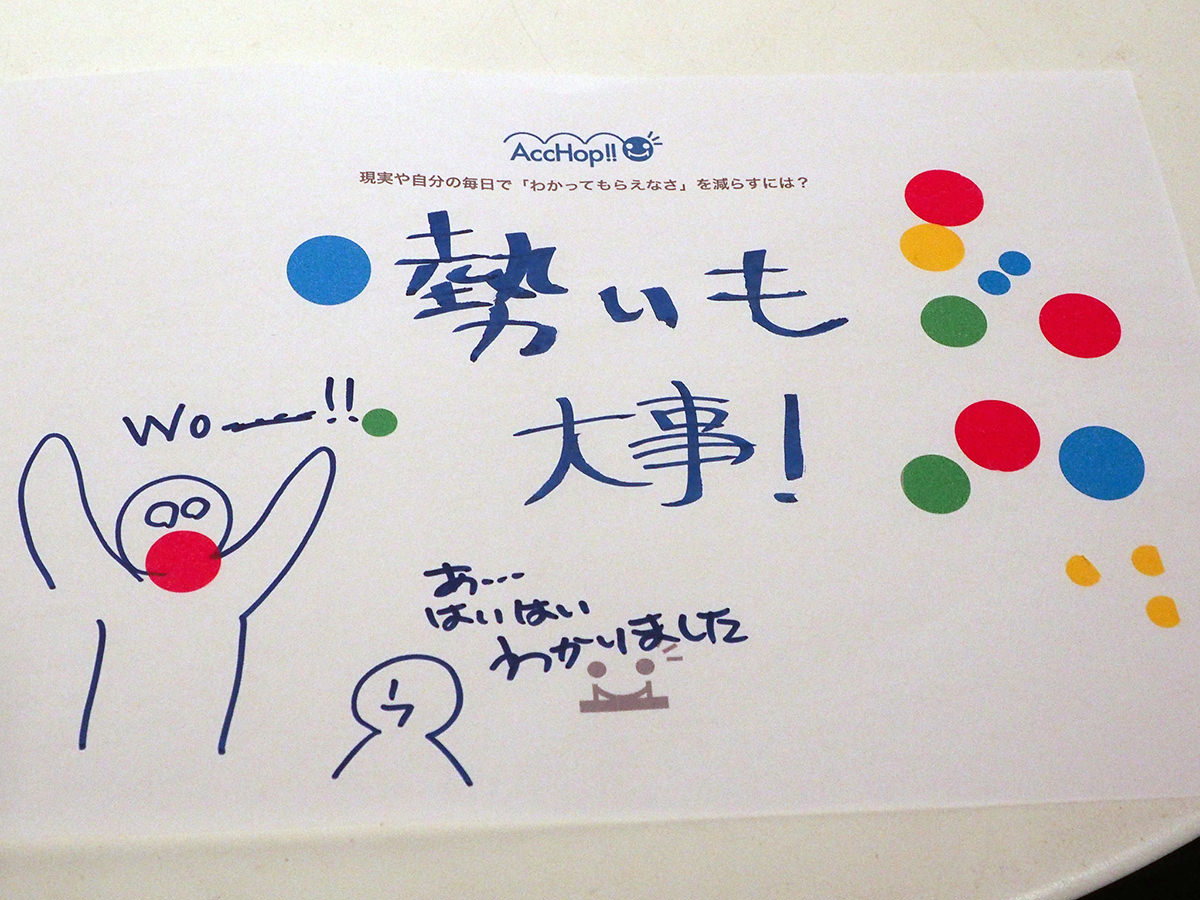 AccHop!!
現実や自分の毎日で「わかってもらえなさ」を減らすには？
勢いも
大事！
Wo——!!
あ…
はいはい
わかりました